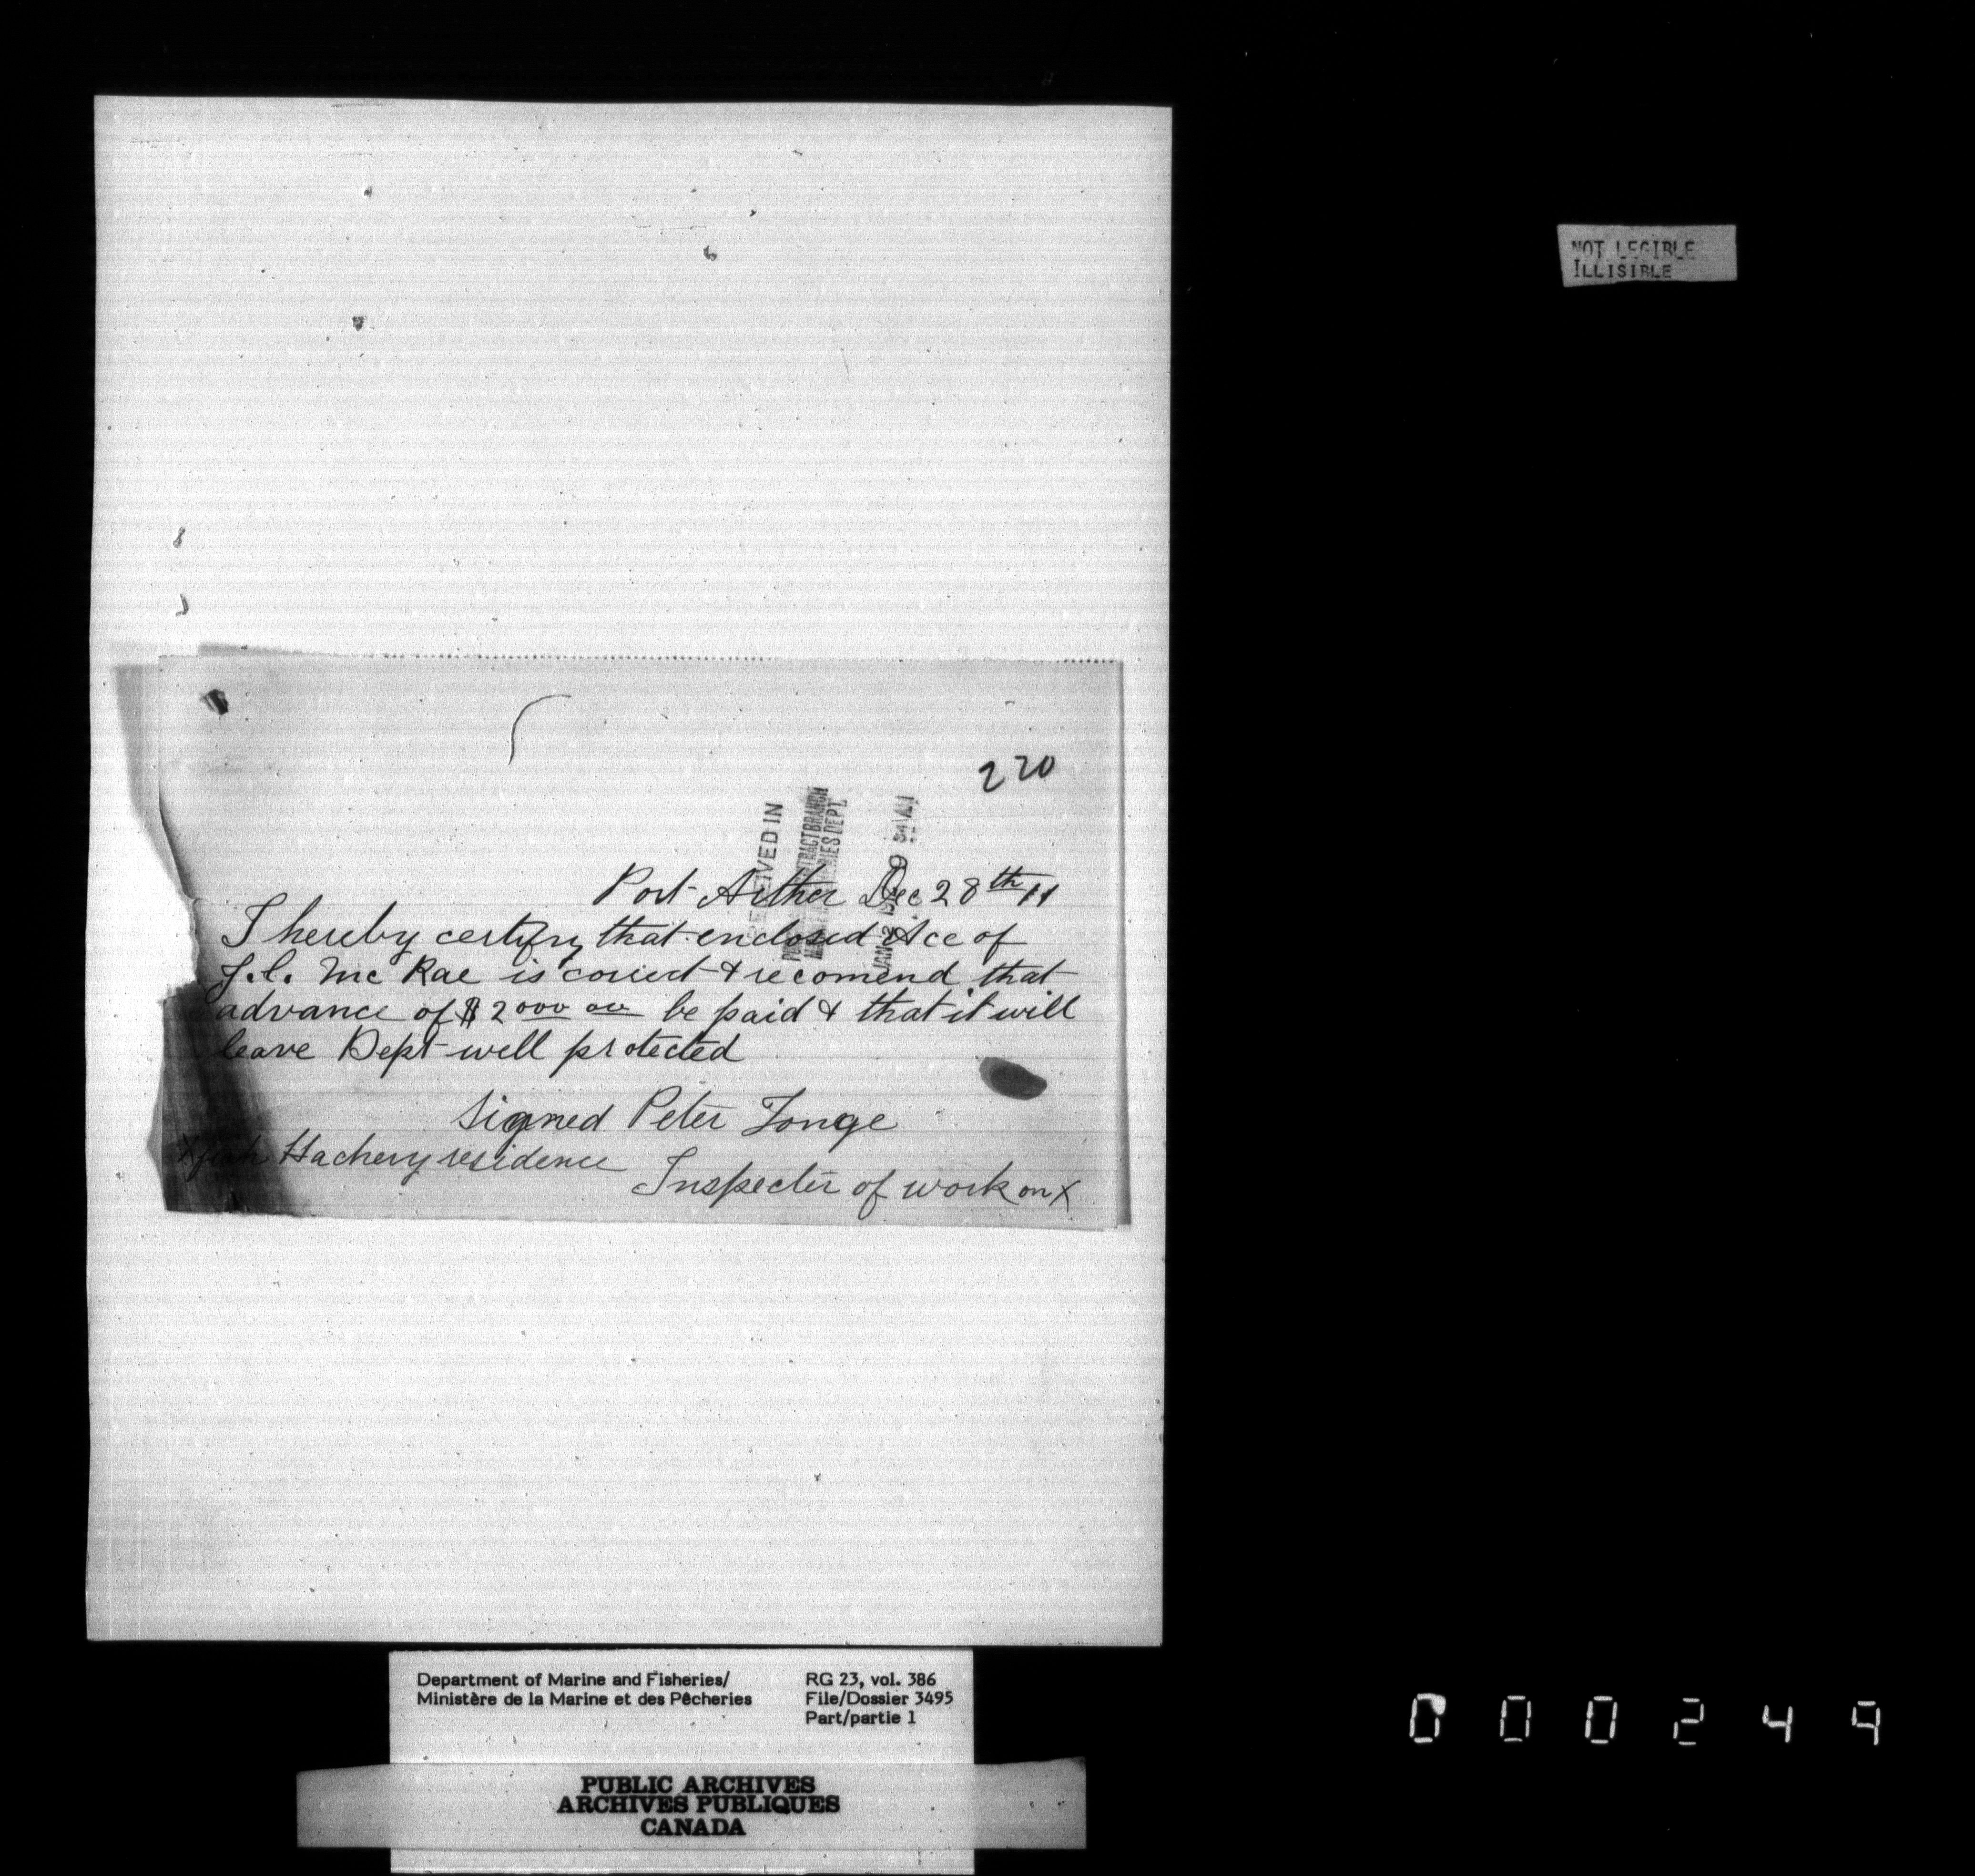 NOT LEGIBLE
ILLISIBLE
220
RECEIVED IN
CONTRACT BRANCH
FISHERIES DEPT.
JAN 2
Port Arther Dec 28th 11
I hereby certify that enclosed Acc of
J.C. Mc Rae is correct & recomend that
advance of $2000 00 be paid & that it will
leave Dept well protected
Signed Peter Tonge
Inspecter of work on X
X fish Hachery residence
Department of Marine and Fisheries/
Ministère de la Marine et des Pêcheries
RG 23, vol. 386
File/Dossier 3495
Part/partie 1
PUBLIC ARCHIVES
ARCHIVES PUBLIQUES
CANADA
000249